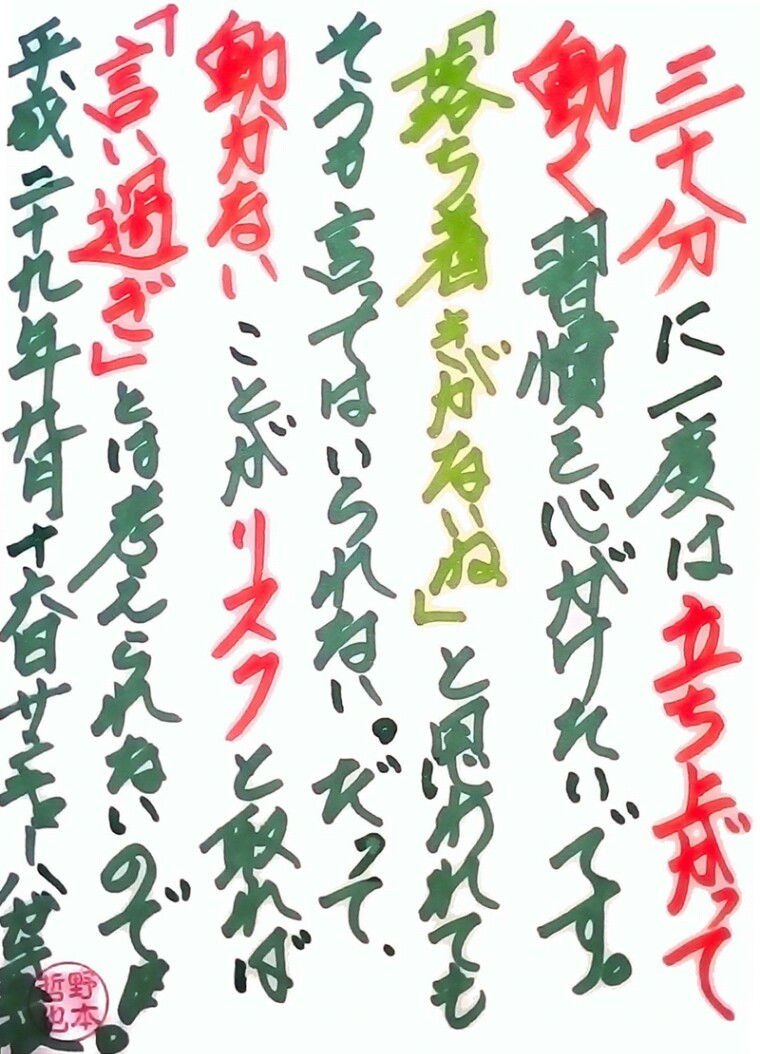 三十分に一度は立ち上がって
働く習慣を心がけたいです。
「落ち着きがないね」と思われても
そうも言ってはいられない。だって、
動かないことがリスクと取れば
「言い過ぎ」とは考えられないのでは。
平成二十九年十月十六日
野本
哲也